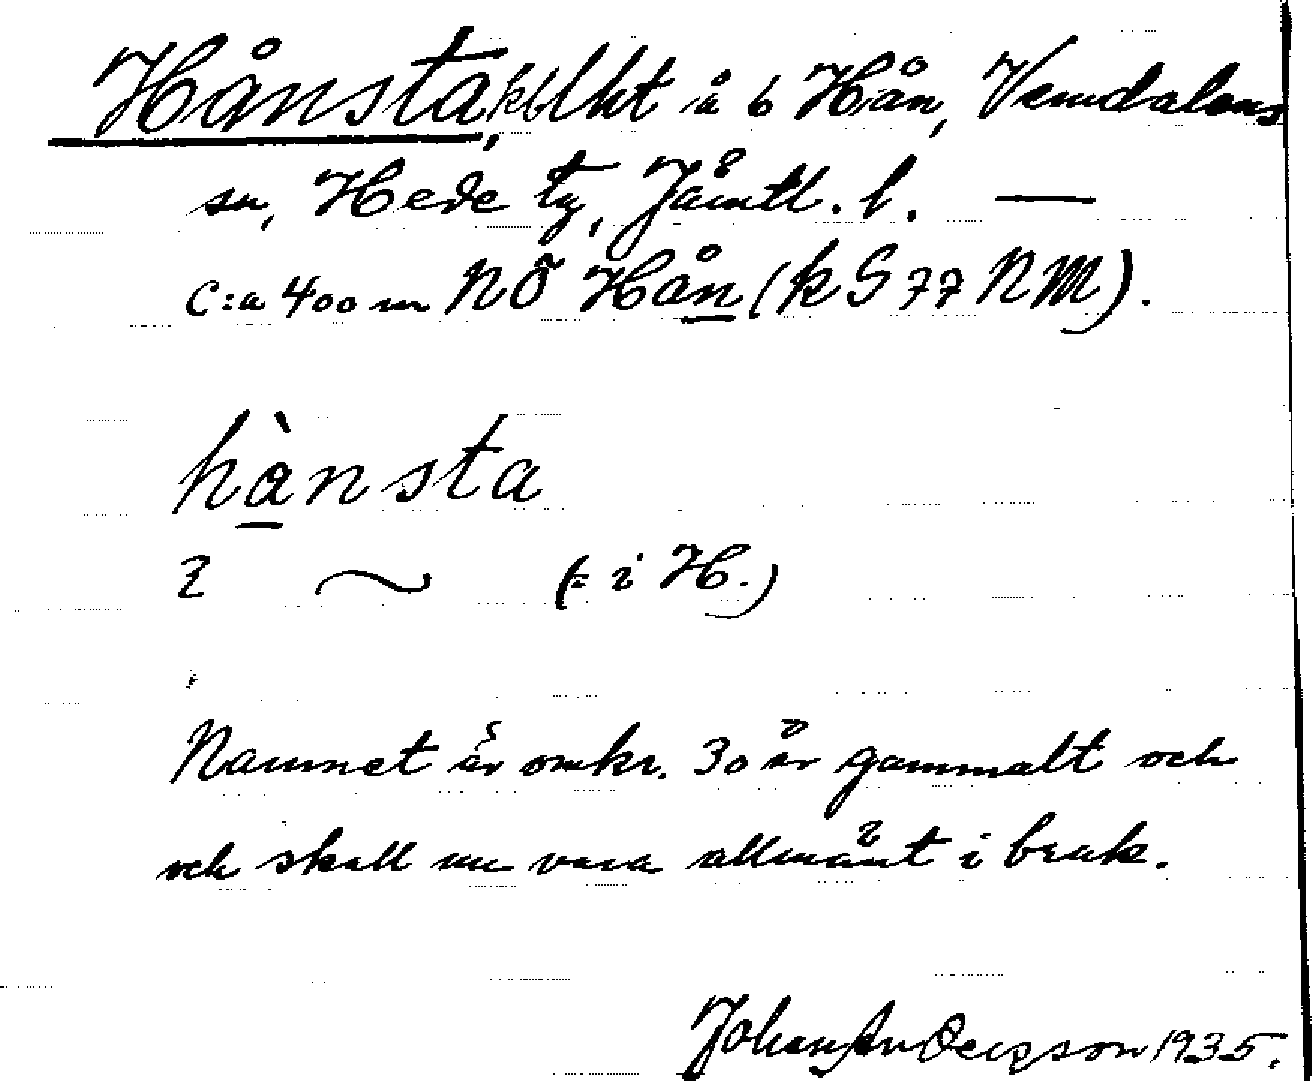 Hånsta, kbl lht å b Hån, Vemdalens
sn, Hede tg, Jämtl. l. —
c:a 400 m NÖ Hån (k S 77 NM).
hànsta
2 ~ (= i H.)
Namnet är omkr. 30 år gammalt och
och skall nu vara allmänt i bruk.
Johan Anderson 1935.